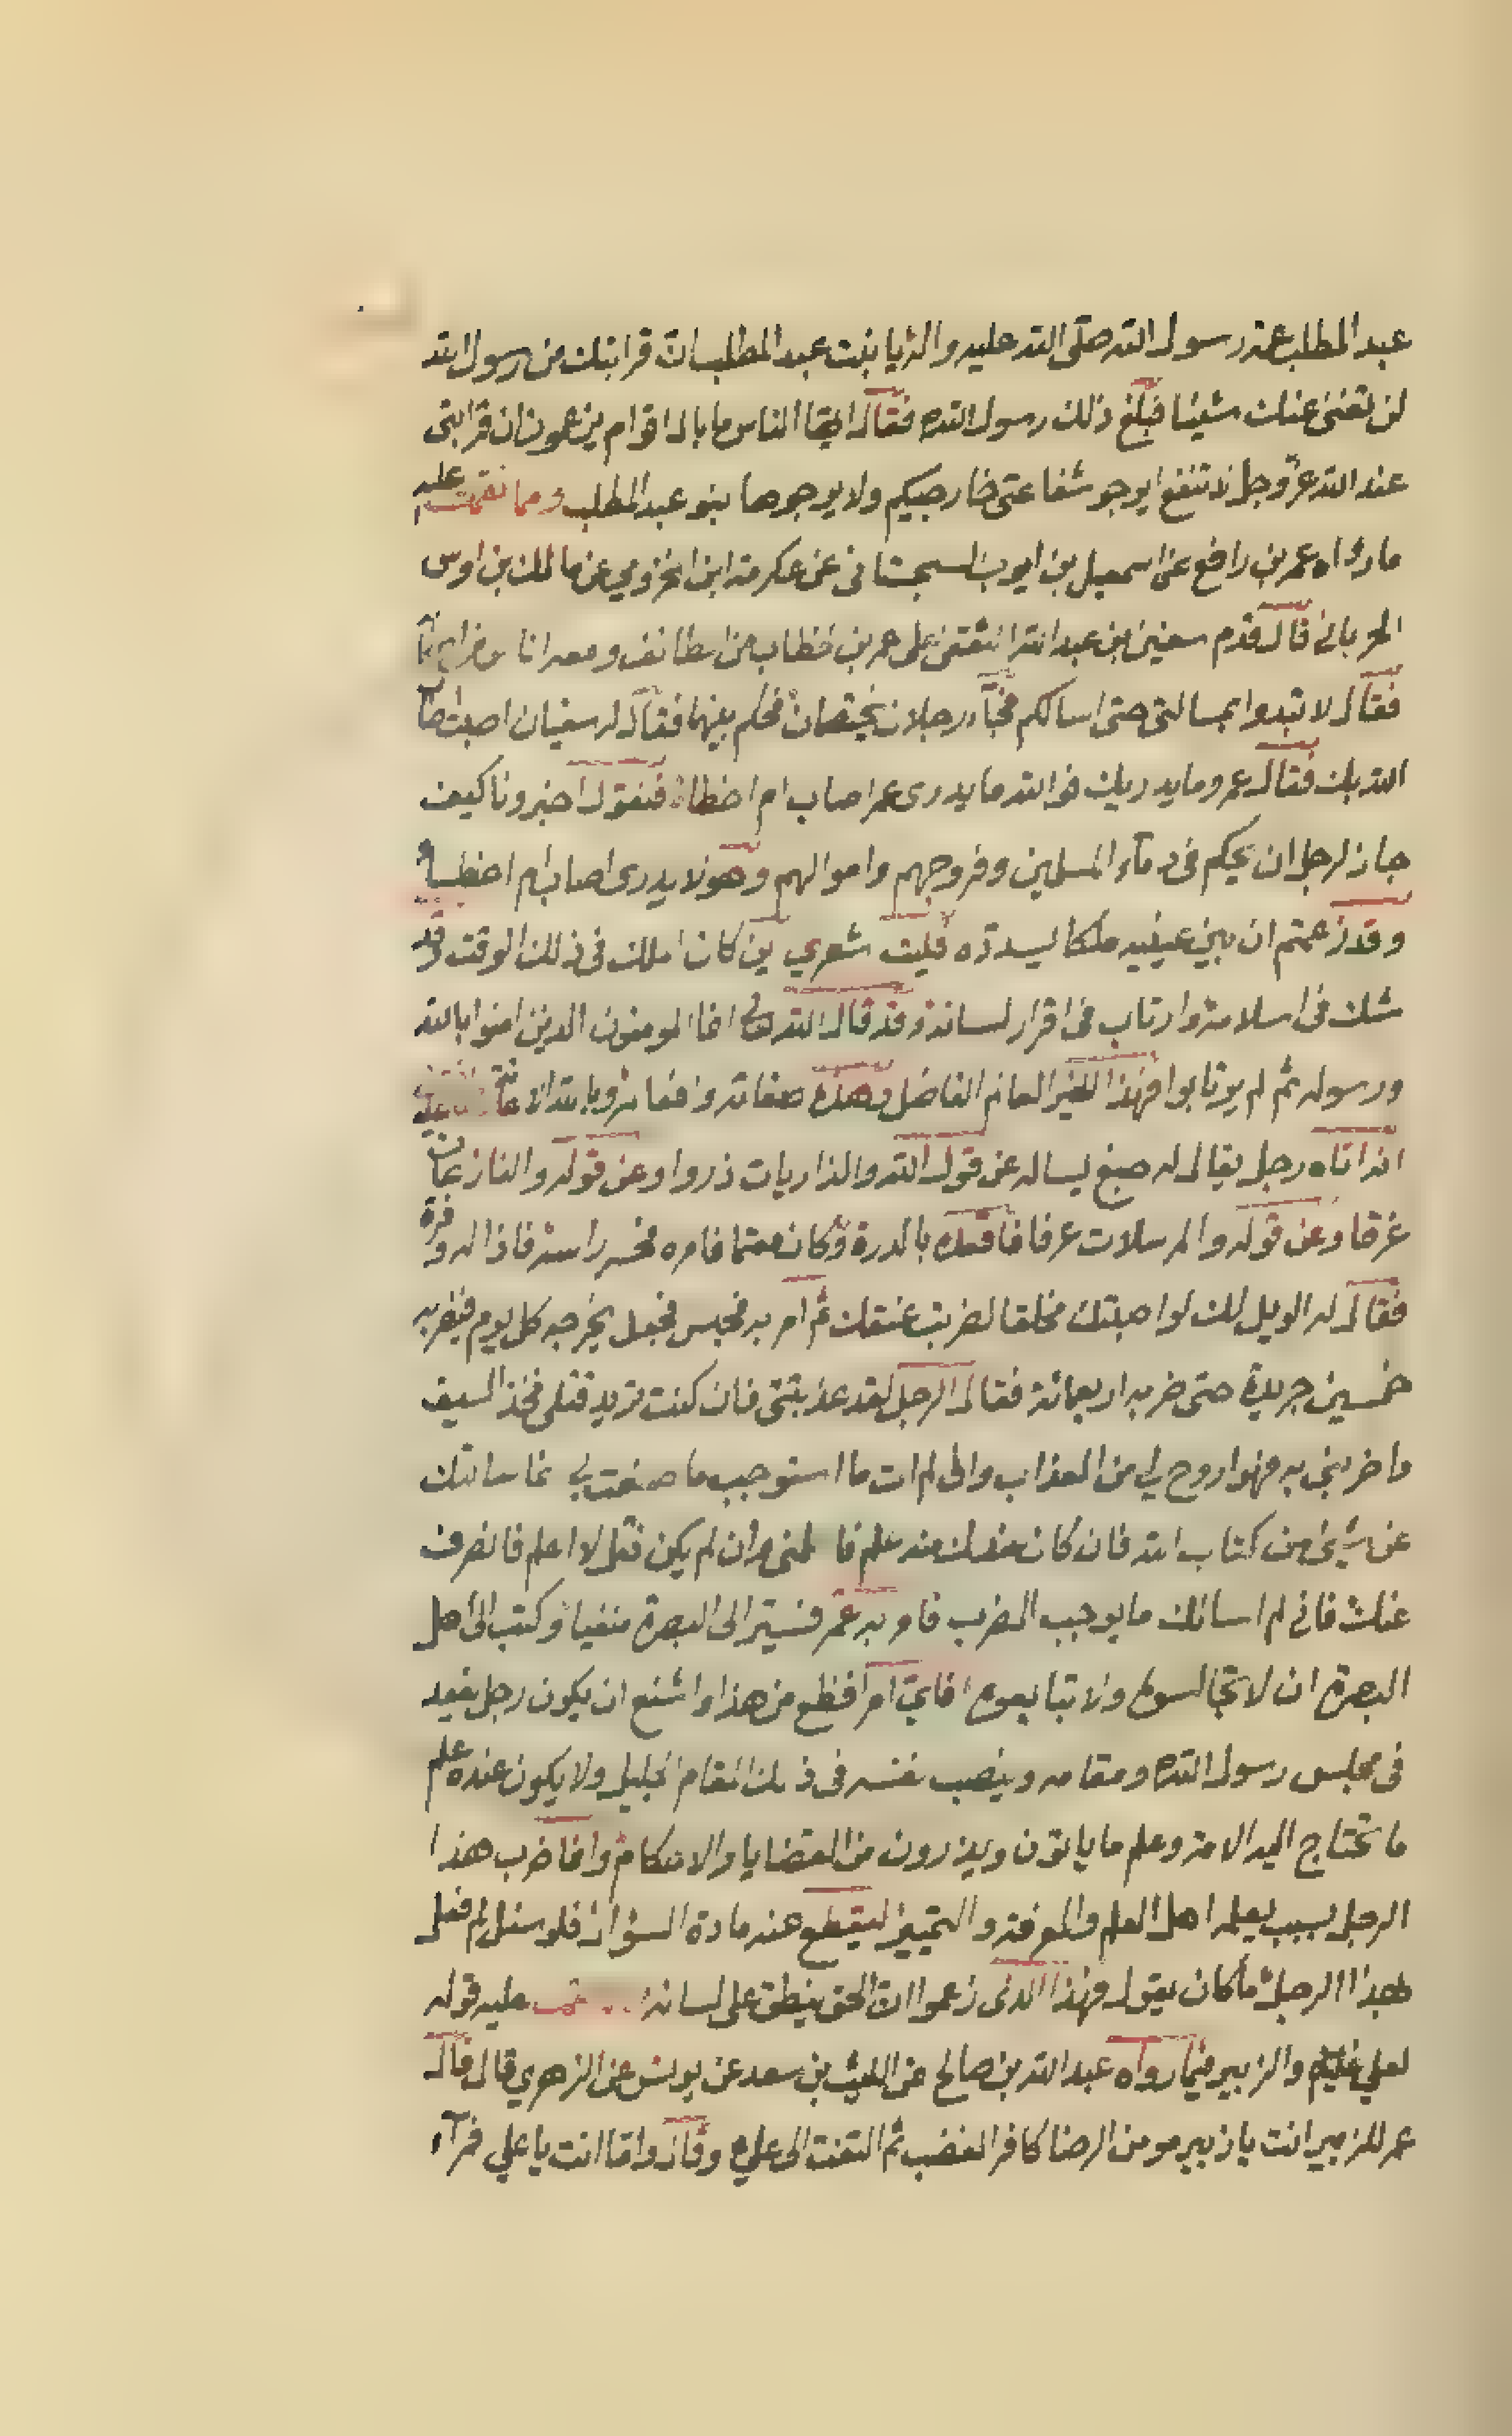 عبد المطلب عمة رسول الله صلّى الله عليه واله يا بنت عبد المطلب ان قرابتك من رسول الله
لن تغنى عنك شيئا فبلغ ذلك رسول الله ص فقال ايها الناس ما بال اقوام يزعمون ان قرابتى
عند الله عزّ وجل لا تنفع ايرجو شفاعتى خارجيكم ولا يرجوها بنو عبد المطلب ومما نقمت عليه
ما رواه عمر بن رافع عن اسمعيل بن ايوب السجستانى عن عكرمة ابن المخزومي عن مالك بن اوس
قال قدم سفين بن عبد الله الثقفى على عمر بن خطاب من الطائف ومعه اناس
فقال لا تبدوا بمسالتى حتى اسالكم فجآء رجلان يختصمان فحكم بينهما فقال له سفيان اصبت اصاب
الله بك فقال عمر وما يدريك فوالله ما يدرى عمر اصاب ام اخطا فنقول اخبرونا كيف
جاز لرجل ان يحكم فى دمآء المسلمين وفروجهم واموالهم وهو لا يدرى اصاب ام اخطا
وقد زعمتم ان بين عينيه ملكا يسدده فليت شعري اين كان الملك فى ذلك الوقت قد
شك فى اسلامه وارتاب فى اقرار لسانه وقد قال الله تعالى انما المومنون الذين امنوا بالله
ورسوله ثم لم يرتابوا فهذا الخير العالم الفاضل وهذه صفاته وافعاله وبالله
اذ اتاه رجل يقال له صبغ يساله عن قول الله والذاريات ذروا وعن قوله والنازعات
غرقا وعن قوله والمرسلات عرفا بالدرة وكان معتما فامره فحسر راسه فاذا له وفرة
فقال له الويل لك لو اصبتك محلقا لضربت عنقك ثم امر به فحبس فجعل يخرجه كل يوم فيضربه
خمسين جريدة حتى ضربه اربعمائة فقال الرجل لقد عذبتنى فان كنت تريد قتلى فخذ السيف
واضربنى به فهو اروح لي من العذاب وانى لم ات ما استوجب ما صنعت بي انما سالتك
عن شيئ من كتاب الله فان كان عندك منه علم وان لم يكن فقل لا اعلم فانصرف
عنك فانى لم اسالك ما يوجب الضرب فامر به عمر فسير الى البصرة منفيا وكتب الى اهل
البصرة ان لا تجالسوه ولا تبايعوه فاي امر افظع من هذا واشنع ان يكون رجل يقعد
فى مجلس رسول الله ص ومقامه وينصب نفسه فى ذلك المقام الجليل ولا يكون عنده علم
ما تحتاج اليه الامة وعلم ما ياتون ويذرون من القضايا والاحكام وانما ضرب هذا
الرجل بسبب يعلمه اهل العلم والمعرفة والتميز ليقطع عنه مادة السؤال فلو سئل لم فعل
بهذا الرجل ما كان يقول فهذا الذى زعموا ان الحق ينطق على لسانه عليه قوله
لعلي والزبير فيما رواه عبد الله بن صالح عن الليث بن سعد عن يونس عن الزهري قال قال
عمر للزبير انت يا زبير مومن الرضا كافر الغضب ثم التفت الى علي ع وقال واما انت يا علي